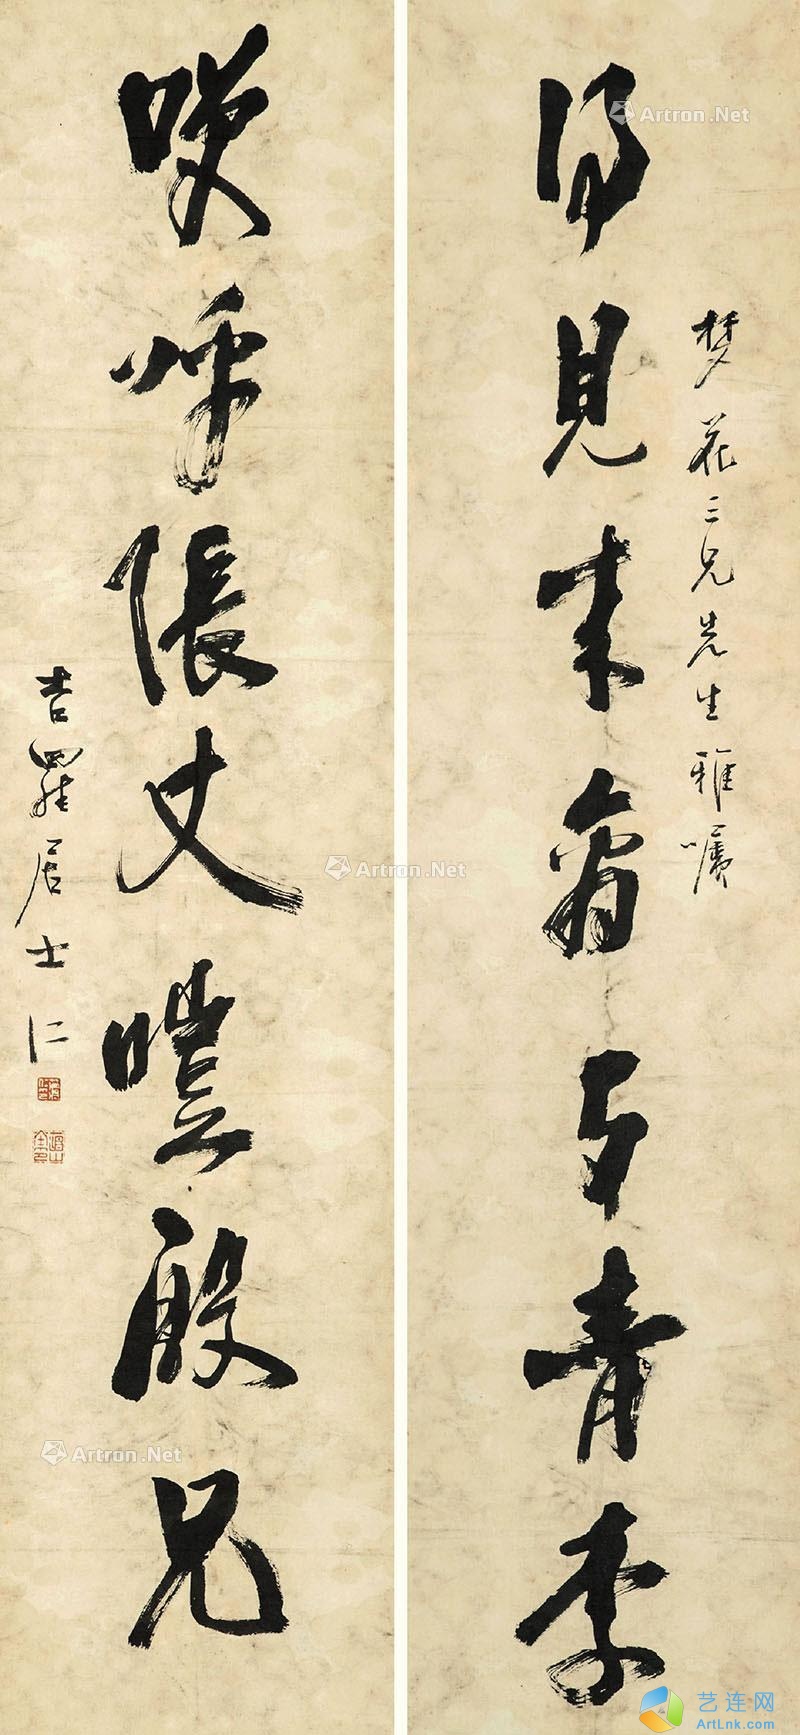 夢花三兄先生雅囑
得見來禽与青李
咲呼張丈殷兄
吉羅居士仁
Artron.Net
Artron.Net
Artron.Net
艺连网
ArtLnk.com